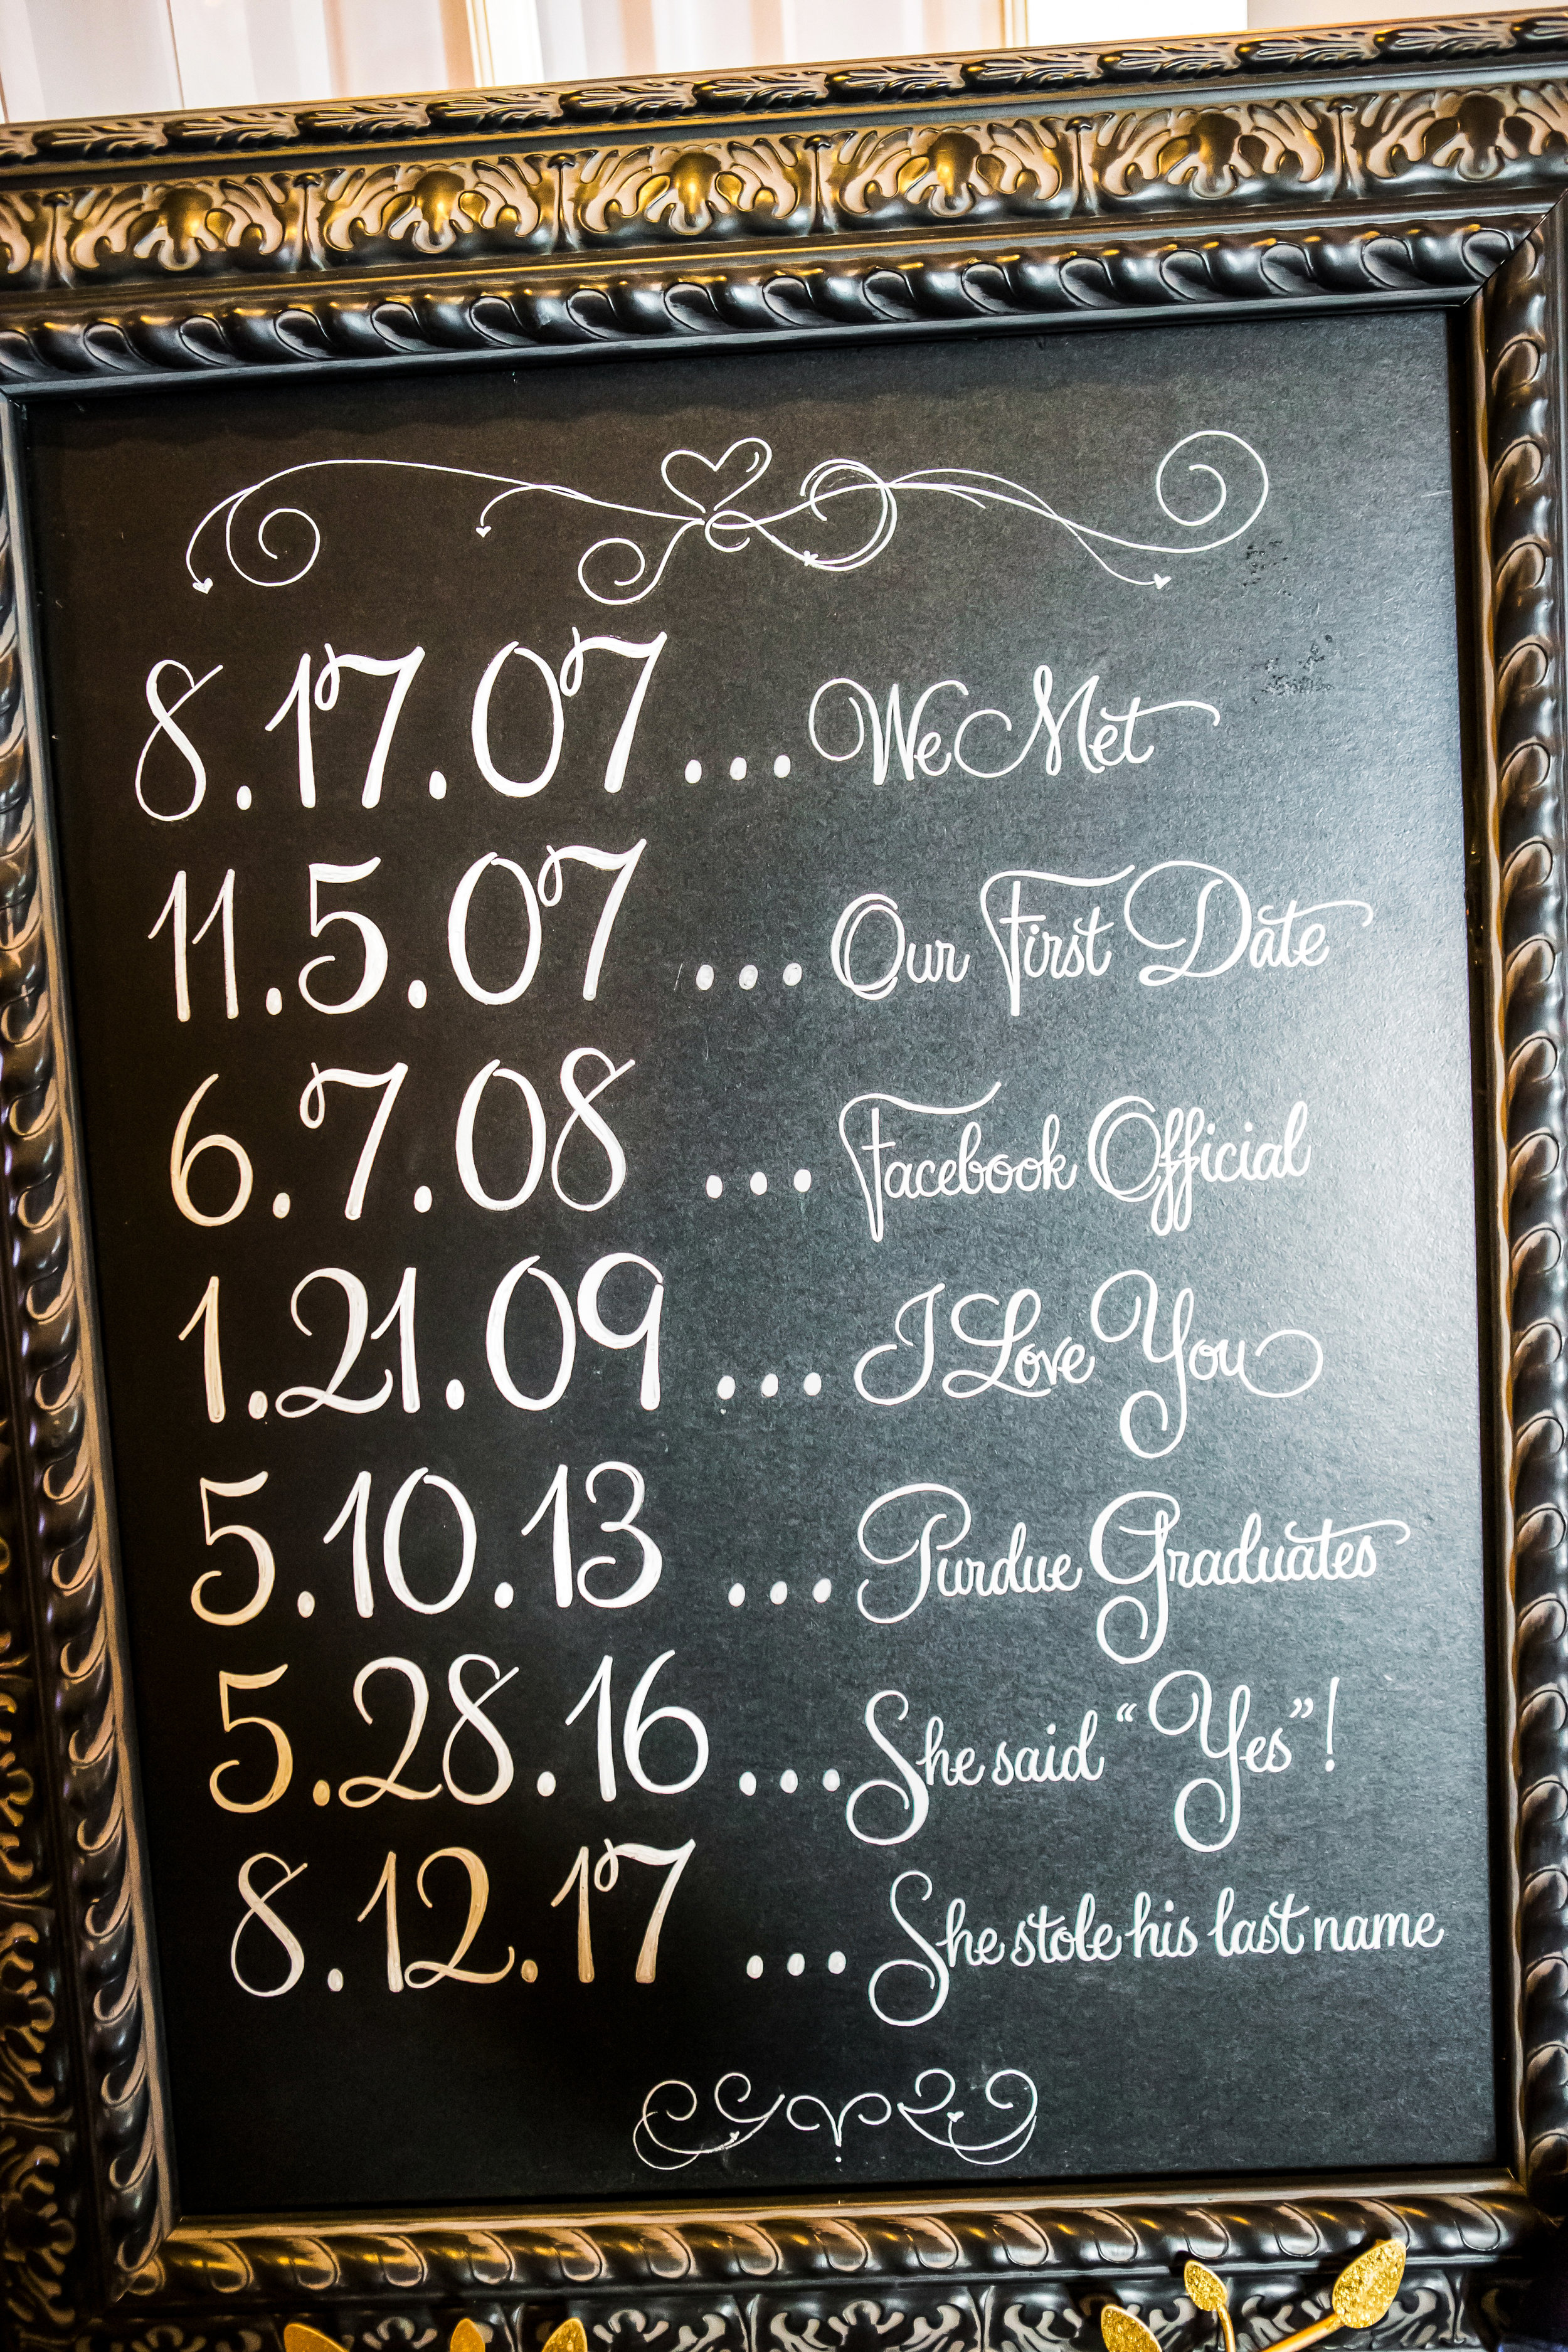 8.17.07...We Met
11.5.07...Our First Date
6.7.08...Facebook Official
1.21.09...I Love You
5.10.13...Purdue Graduates
5.28.16...She said "Yes"!
8.12.17...She stole his last name